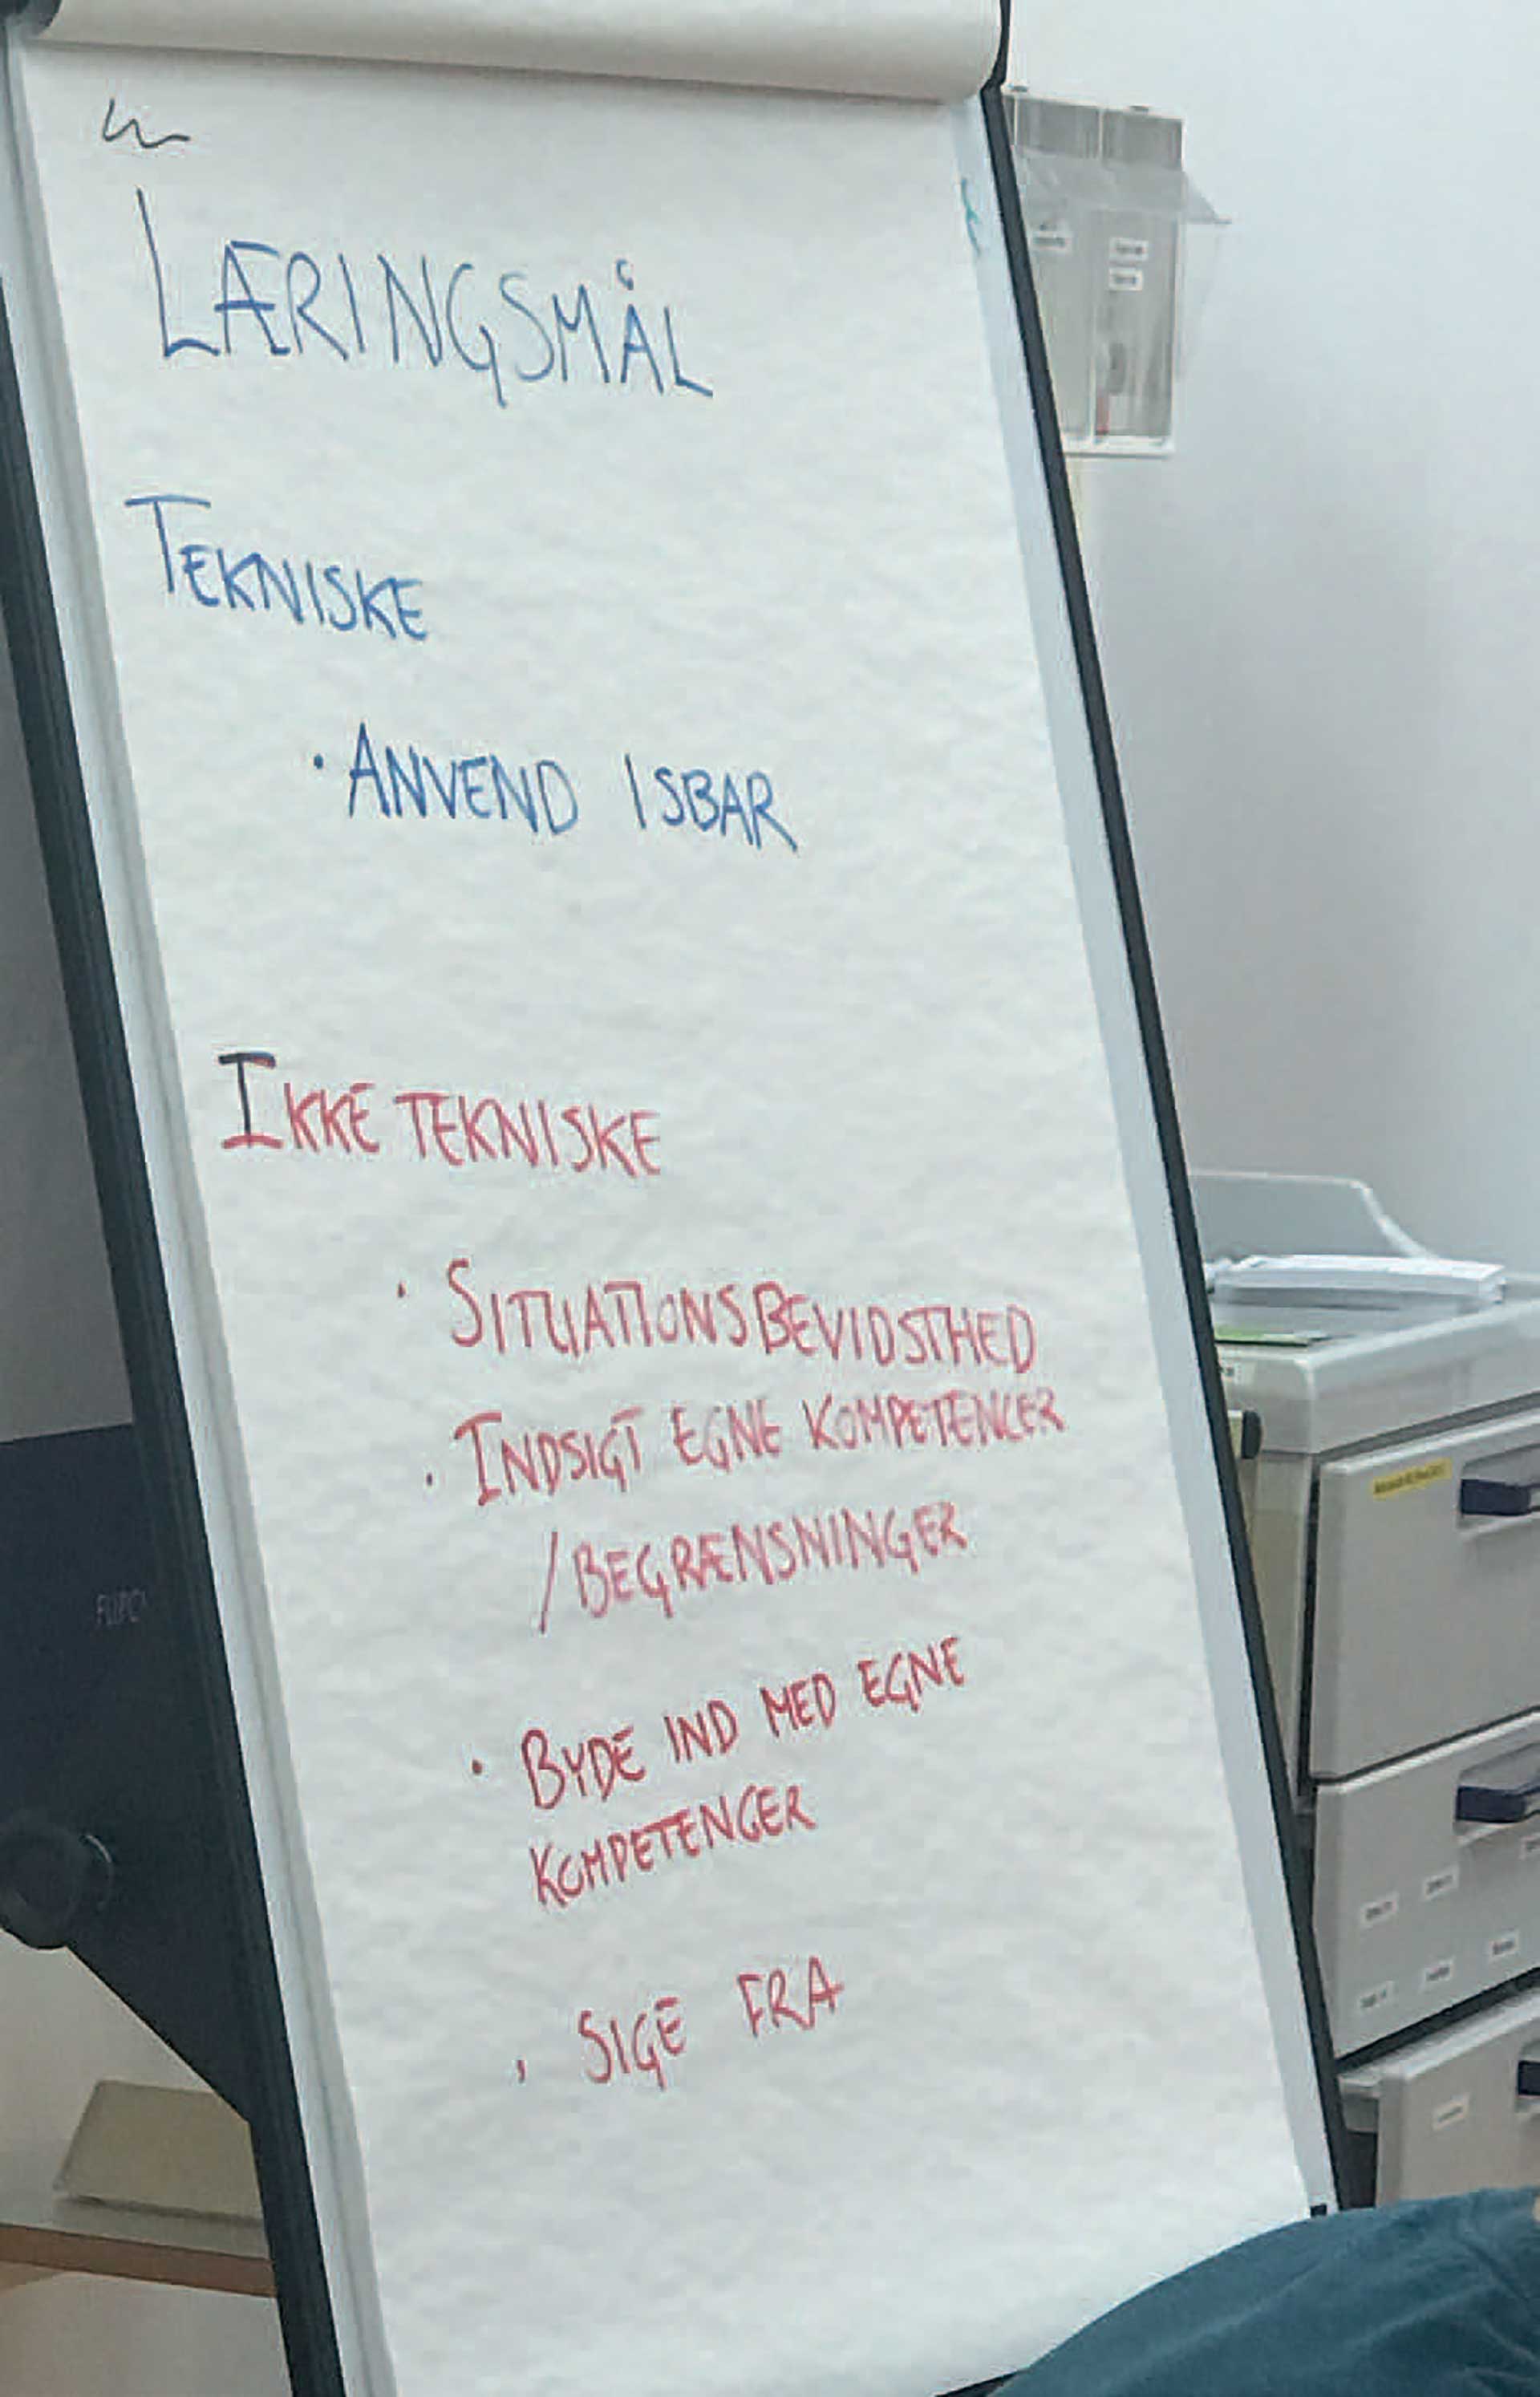 LÆRINGSMÅL
TEKNISKE
· ANVEND ISBAR
IKKE TEKNISKE
· SITUATIONSBEVIDSTHED
· INDSIGT EGNE KOMPETENCER
/BEGRÆNSNINGER
· BYDE IND MED EGNE
KOMPETENCER
· SIGE FRA